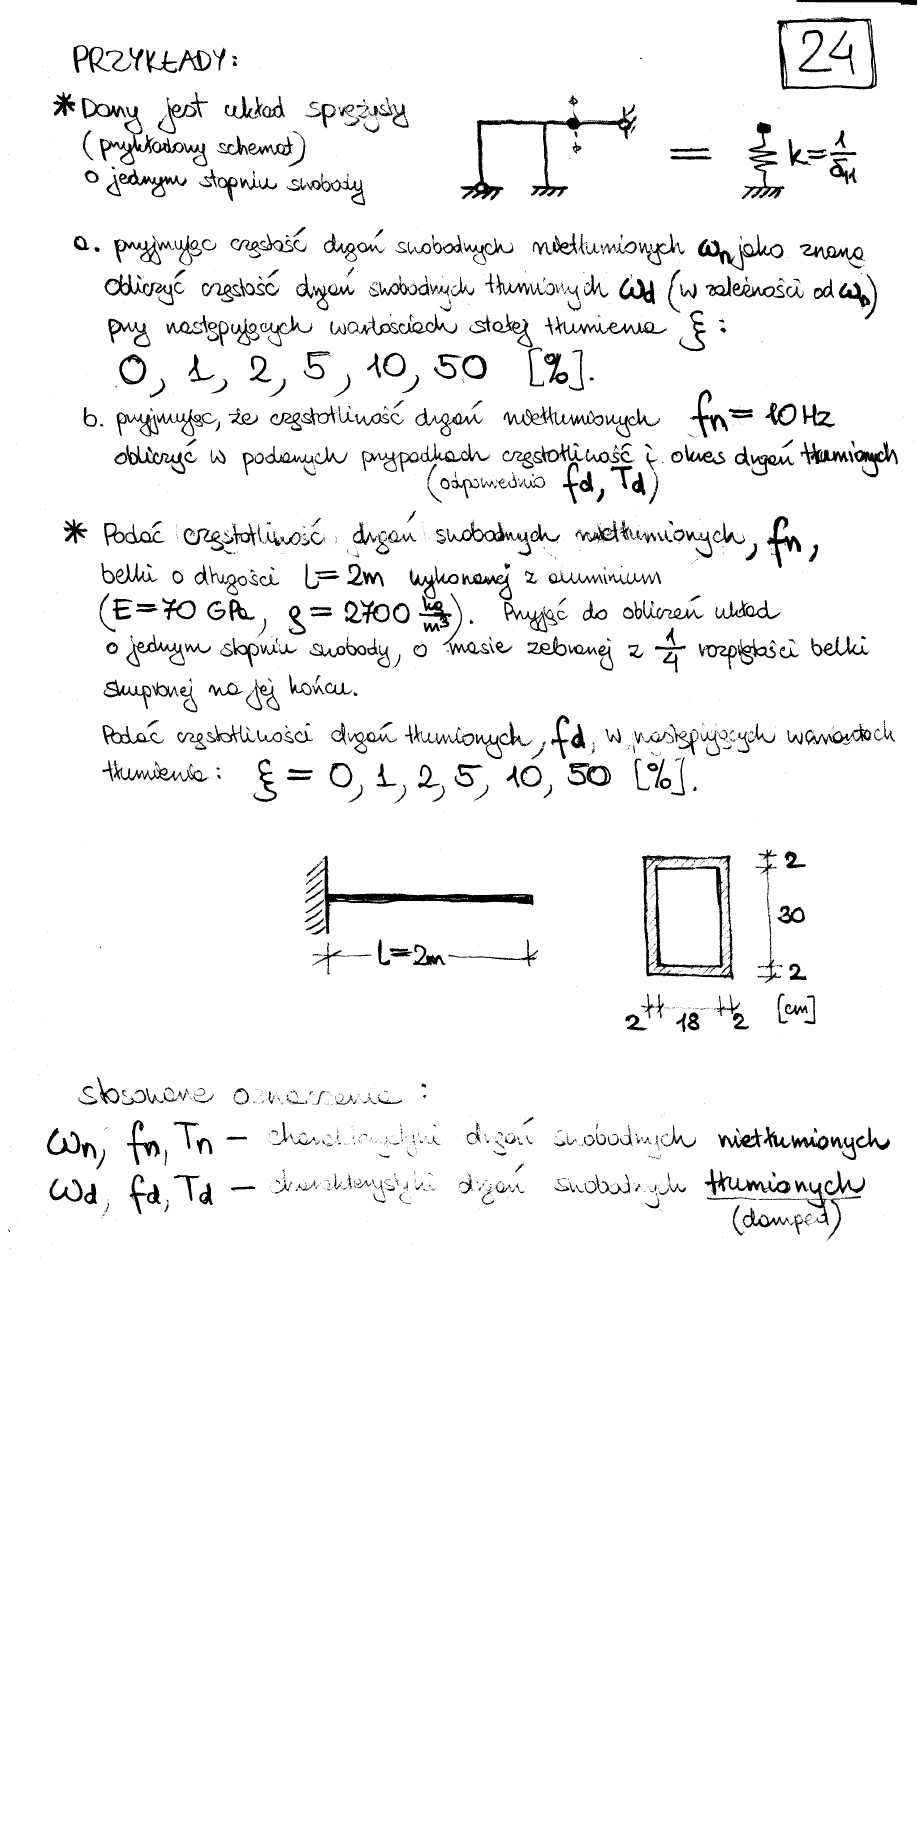 24
PRZYKŁADY:
* Dany jest układ sprężysty
(przykładowy schemat)
o jednym stopniu swobody
= k = 1/δ11
a. przyjmując częstość drgań swobodnych nietłumionych ωn jako znaną
obliczyć częstość drgań swobodnych tłumionych ωd (w zależności od ωn)
przy następujących wartościach stałej tłumienia ξ :
0, 1, 2, 5, 10, 50 [%].
b. przyjmując, że częstotliwość drgań nietłumionych fn = 10 Hz
obliczyć w podanych przypadkach częstotliwość i okres drgań tłumionych
(odpowiednio fd, Td)
* Podać częstotliwość drgań swobodnych nietłumionych, fn,
belki o długości l = 2m wykonanej z aluminium
(E = 70 GPa, ρ = 2700 kg/m³). Przyjąć do obliczeń układ
o jednym stopniu swobody, o masie zebranej z 1/4 rozpiętości belki
skupionej na jej końcu.
Podać częstotliwości drgań tłumionych, fd, w następujących wariantach
tłumienia : ξ = 0, 1, 2, 5, 10, 50 [%].
l = 2m
2
30
2
2 18 2 [cm]
stosowane oznaczenia :
ωn, fn, Tn – charakterystyki drgań swobodnych nietłumionych
ωd, fd, Td – charakterystyki drgań swobodnych tłumionych
(damped)